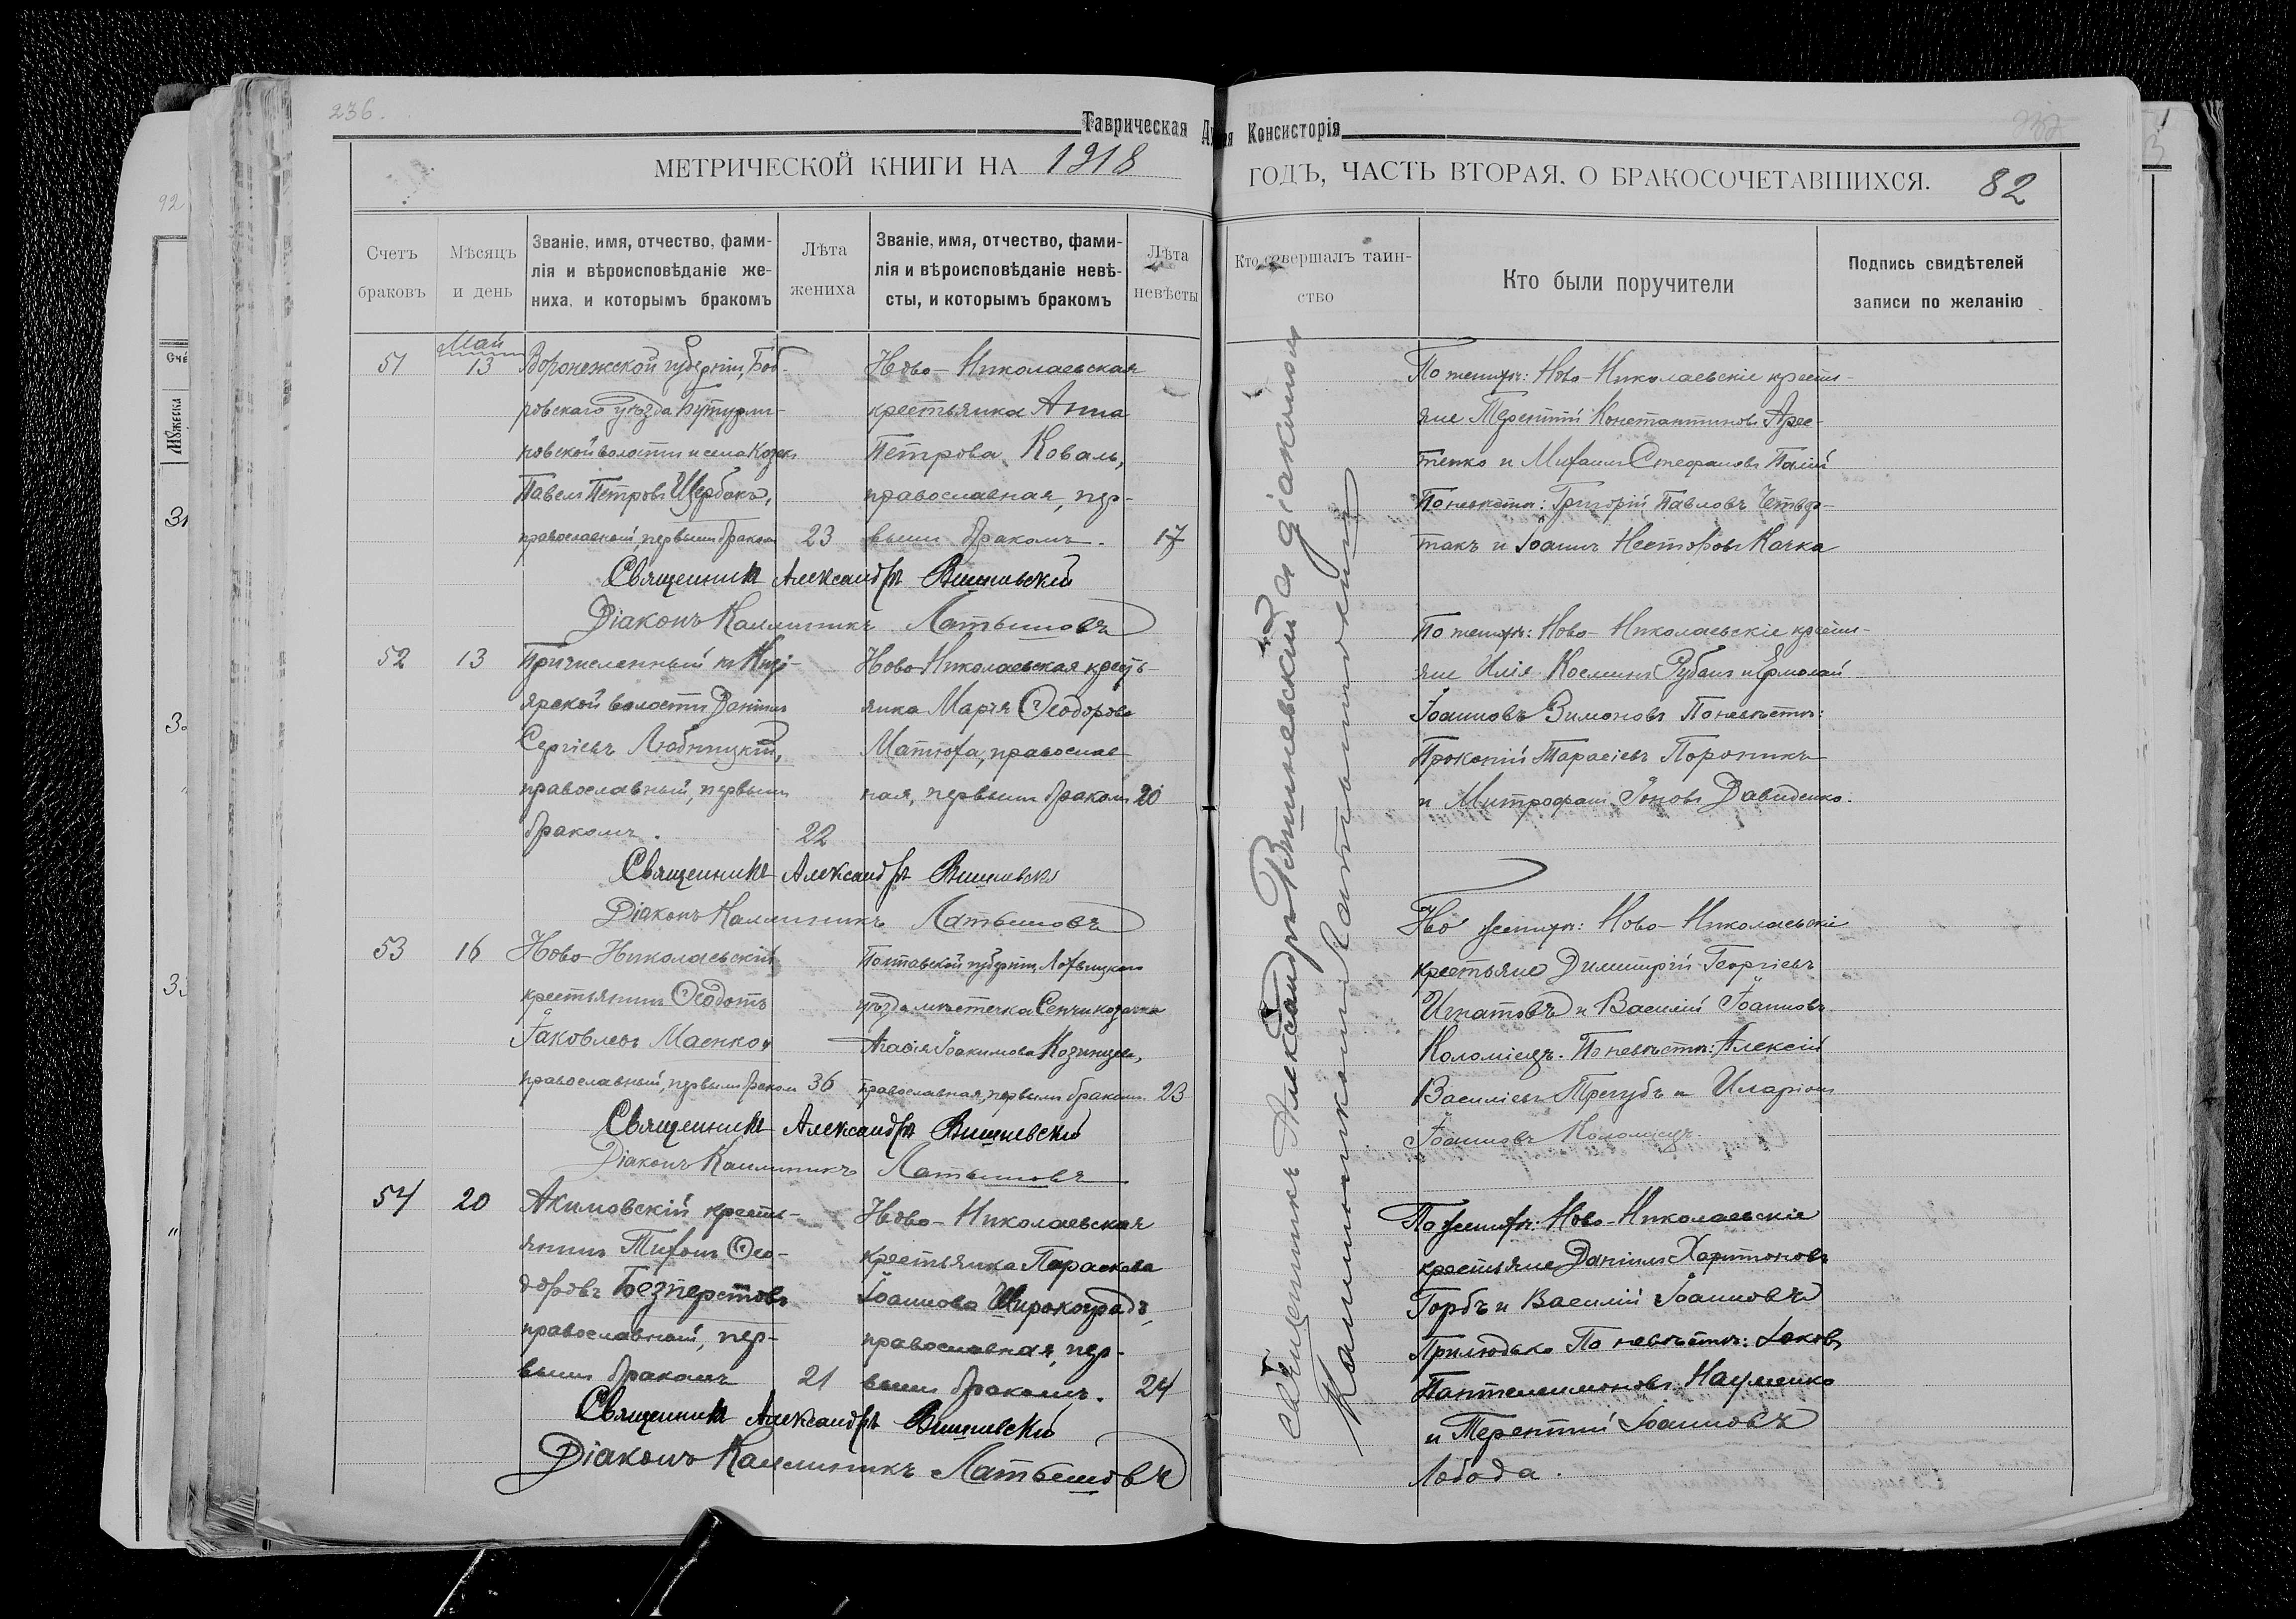 236.
Таврическая Консисторія
МЕТРИЧЕСКОЙ КНИГИ НА 1918
ГОДЪ, ЧАСТЬ ВТОРАЯ, О БРАКОСОЧЕТАВШИХСЯ.
82
Счетъ браковъ
Мѣсяцъ и день
Званіе, имя, отчество, фами-
лія и вѣроисповѣданіе же-
ниха, и которымъ бракомъ
Лѣта жениха
Званіе, имя, отчество, фами-
лія и вѣроисповѣданіе невѣ-
сты, и которымъ бракомъ
Лѣта невѣсты
Кто совершалъ таин-
ство
Кто были поручители
Подпись свидѣтелей
записи по желанію
Май
51
13
Воронежской губерніи, Боб-
ровскаго уѣзда Бутурли-
новской волости и села
Павелъ Петровъ Щербакъ,
православный, первымъ бракомъ
23
Ново-Николаевская
крестьянка Анна
Петрова Коваль,
православная, пер-
вымъ бракомъ.
17
По жениху: Ново-Николаевскіе кресть-
яне Терентій Константиновъ
и Михаилъ Стефановъ Палій
По невѣстѣ: Григорій Павловъ Четвер-
такъ и Іоаннъ Несторовъ Качка
Священникъ Александръ Вишневскій
Діаконъ Каллиникъ Латышовъ
52
13
Причисленный къ Кизі-
ярской волости Даніилъ
Сергіевъ Любицкій,
православный, первымъ
бракомъ.
22
Ново-Николаевская кресть-
янка Марія Ѳеодорова
Матюха, православ-
ная, первымъ бракомъ
20
По жениху: Ново-Николаевскіе кресть-
яне Илія Косминъ Рубанъ и Ермолай
Іоанновъ Зимоновъ. По невѣстѣ:
Прокопій Тарасіевъ Пороникъ
и Митрофанъ Іоновъ Давиденко.
Священникъ Александръ Вишневскій
Діаконъ Каллиникъ Латышовъ
53
16
Ново-Николаевскій
крестьянинъ Ѳеодотъ
Іаковлевъ Масенко,
православный, первымъ бракомъ
36
Полтавской губерніи Лохвицкаго
уѣзда мѣстечка Сенчи козачка
Агафія Іоакимова Козинцева,
православная, первымъ бракомъ
23
По жениху: Ново-Николаевскіе
крестьяне Димитрій Георгіевъ
Игнатовъ и Василій Іоанновъ
Коломіецъ. По невѣстѣ: Алексій
Василіевъ Трегубъ и Иларіонъ
Іоанновъ Коломіецъ.
Священникъ Александръ Вишневскій
Діаконъ Каллиникъ Латышовъ
54
20
Акимовскій кресть-
янинъ Тихонъ Ѳео-
доровъ Безперстовъ
православный, пер-
вымъ бракомъ
21
Ново-Николаевская
крестьянка Параскева
Іоаннова Широкоградъ,
православная, пер-
вымъ бракомъ.
24
По жениху: Ново-Николаевскіе
крестьяне Даніилъ Харитоновъ
Горбъ и Василій Іоанновъ
Прилюдько По невѣстѣ: Іаковъ
Пантелеимоновъ Науменко
и Терентій Іоанновъ
Лобода.
Священникъ Александръ Вишневскій
Діаконъ Каллиникъ Латышовъ
Священникъ Александръ Вишневскій съ діакономъ
Каллиникомъ Латышовымъ